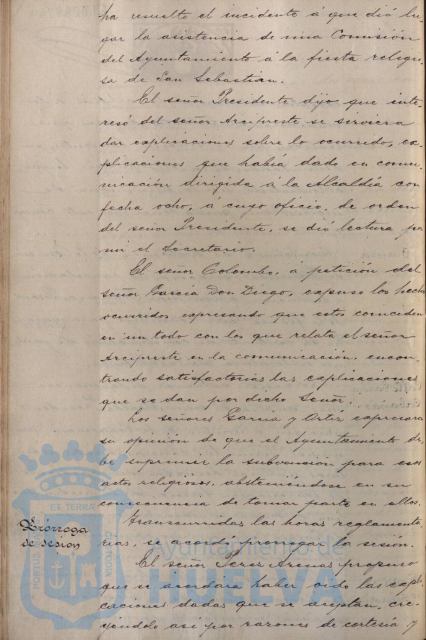 ha resuelto el incidente á que dió lu-
gar la asistencia de una Comisión
del Ayuntamiento á la fiesta religio-
sa de San Sebastian.
El señor Presidente dijo que inte-
resó del señor Arcipreste se sirviera
dar explicaciones sobre lo ocurrido, ex-
plicaciones que había dado en comu-
nicación dirigida á la Alcaldía con
fecha ocho, á cuyo oficio, de orden
del señor Presidente, se dió lectura por
mi el Secretario.
El señor Colombo, a petición del
señor García Don Diego, expuso los hechos
ocurridos expresando que estos coinciden
en un todo con los que relata el señor
Arcipreste en la comunicación, encon-
trando satisfactorias las explicaciones
que se dan por dicho Señor.
Los señores García y Ortiz expresaron
su opinión de que el Ayuntamiento de-
be suprimir la subvención para esos
actos religiosos, absteniéndose en su
consecuencia de tomar parte en ellos.
Transcurridas las horas reglamenta-
rias, se acordó prorrogar la sesión.
Prórroga
de sesión
El señor Perez Arenas propuso
que se acordara haber oido las expli-
caciones dadas que se aceptan, cre-
yéndolo así por razones de cortesía y
EX TERRA
Ayuntamiento de
HUELVA